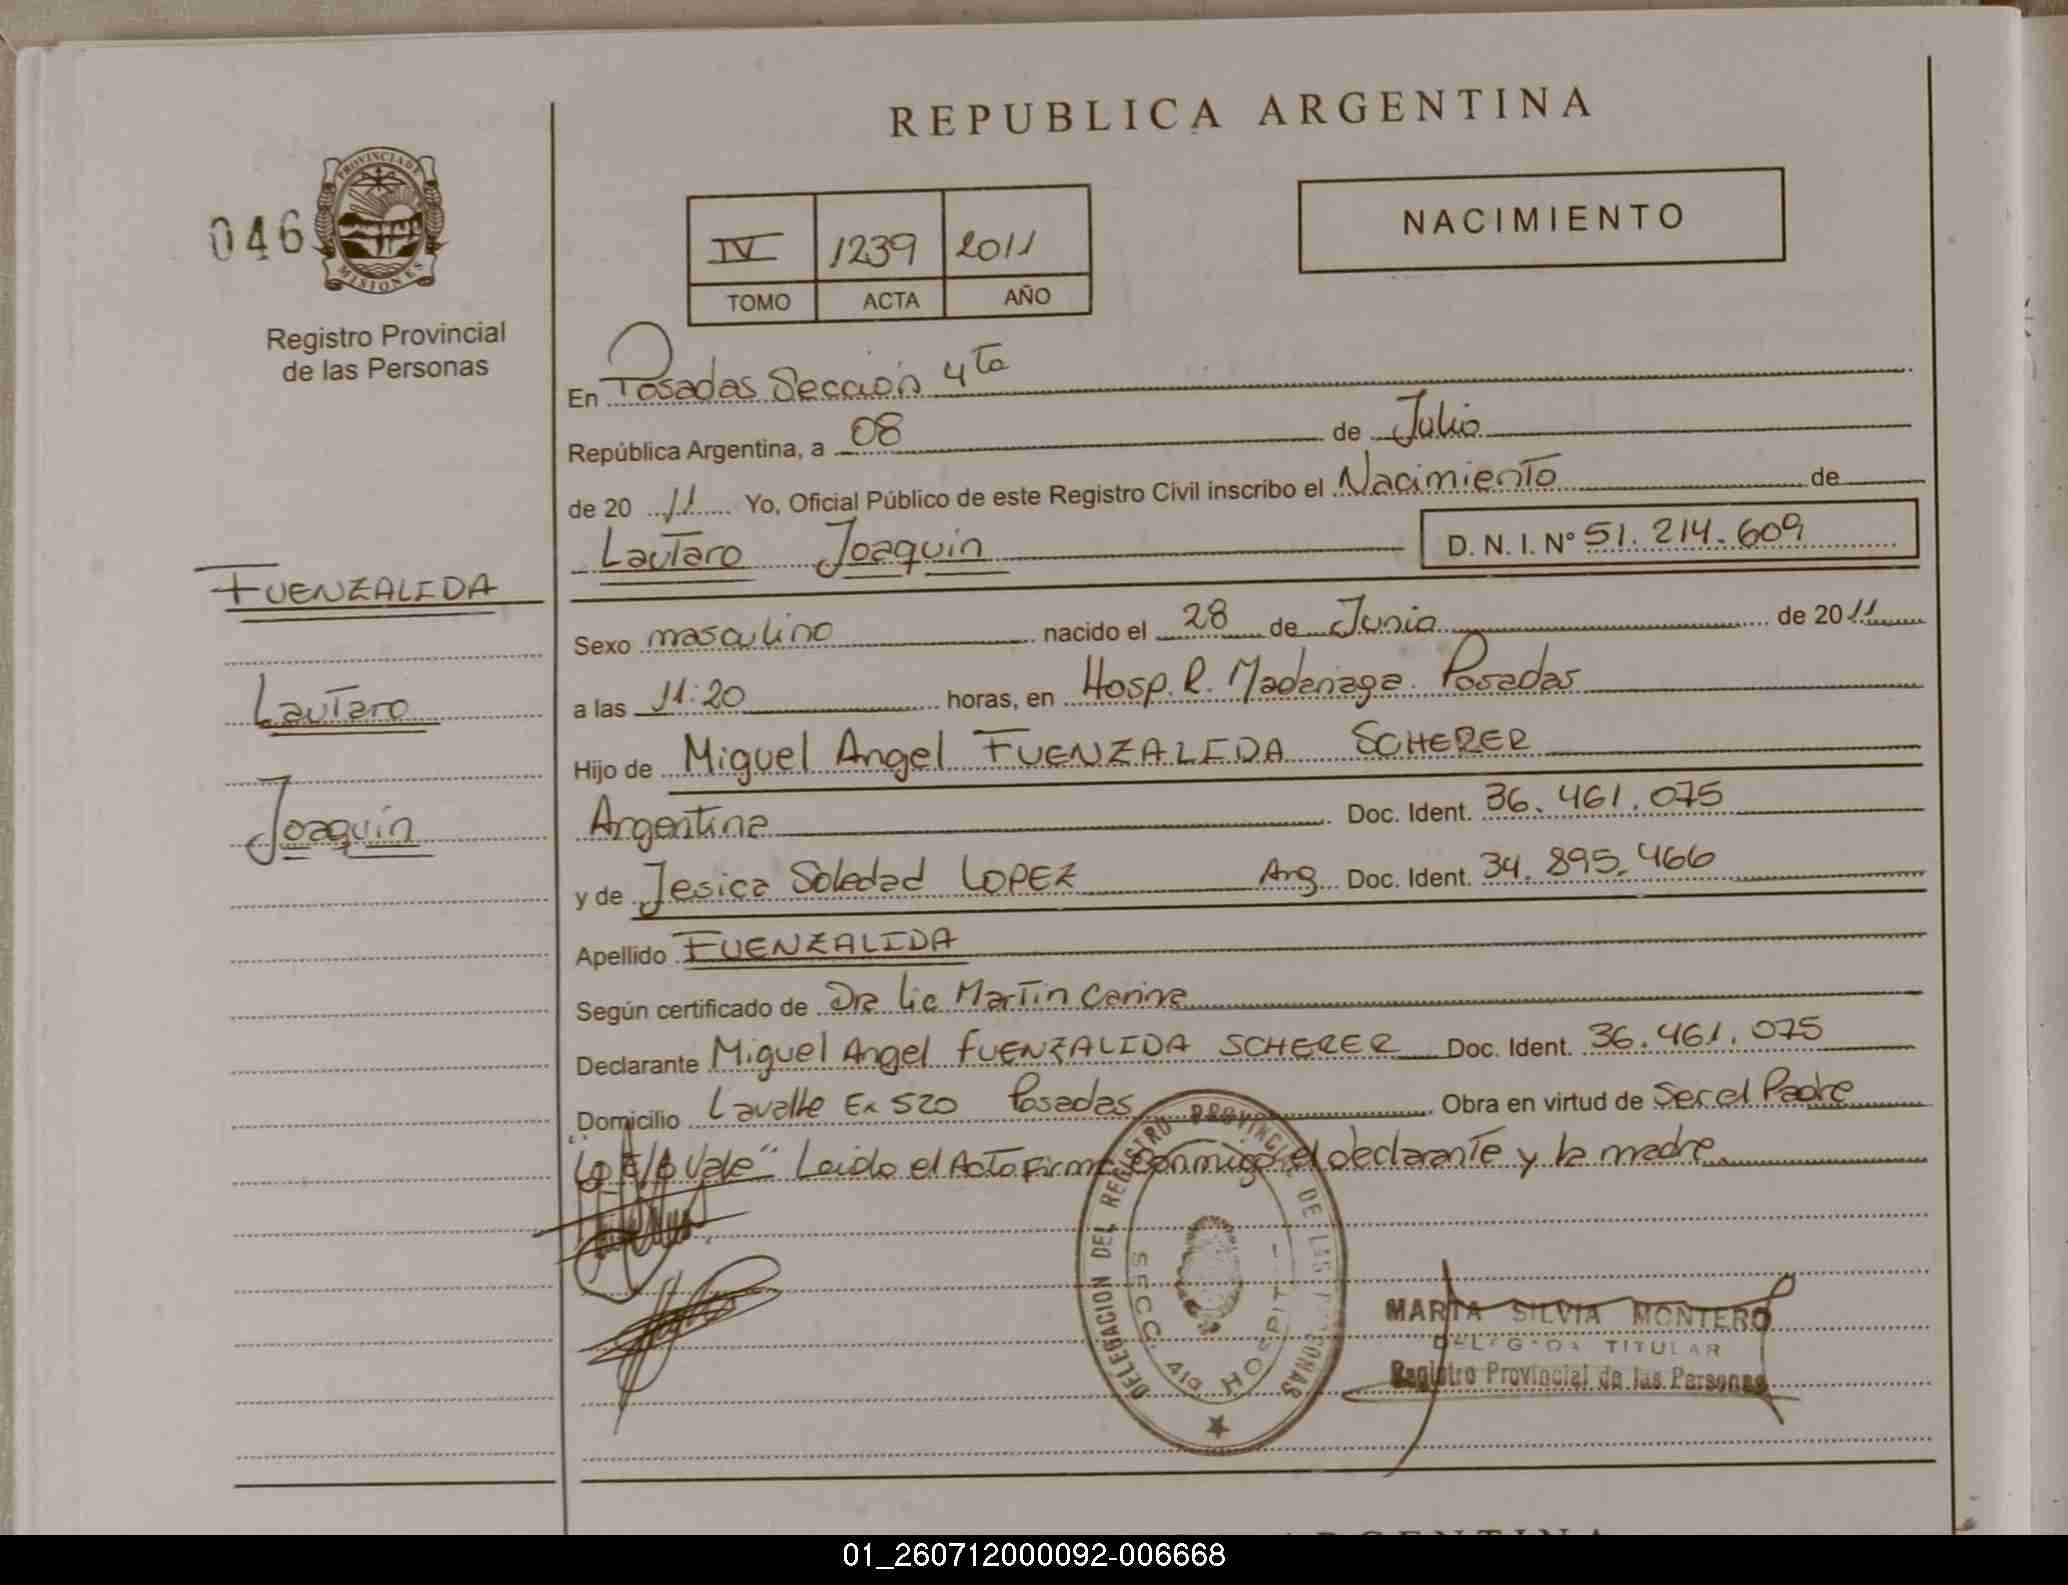 REPUBLICA ARGENTINA
046
PROVINCIA DE
MISIONES
Registro Provincial
de las Personas
IV 1239 2011
TOMO ACTA AÑO
NACIMIENTO
En Posadas Sección 4ta
República Argentina, a 08 de Julio
de 20 11 Yo, Oficial Público de este Registro Civil inscribo el Nacimiento de
Lautaro Joaquin D. N. I. N° 51.214.609
FUENZALIDA
Lautaro
Joaquin
Sexo masculino nacido el 28 de Junio de 2011
a las 11:20 horas, en Hosp. R. Madariaga. Posadas
Hijo de Miguel Angel FUENZALIDA SCHERER
Argentina Doc. Ident. 36.461.075
y de Jesica Soledad LOPEZ Arg Doc. Ident. 34.895.466
Apellido FUENZALIDA
Según certificado de Dra Lic Martin Carina
Declarante Miguel Angel FUENZALIDA SCHERER Doc. Ident. 36.461.075
Domicilio Lavalle Ex 520 Posadas Obra en virtud de Ser el Padre
Vale" Leido el Acta firma conmigo el declarante y la madre
DELEGACION DEL REGISTRO PROVINCIAL DE LAS PERSONAS
SECC. 4ta HOSPITAL
MARTA SILVIA MONTERO
DELEGADA TITULAR
Registro Provincial de las Personas
01_260712000092-006668